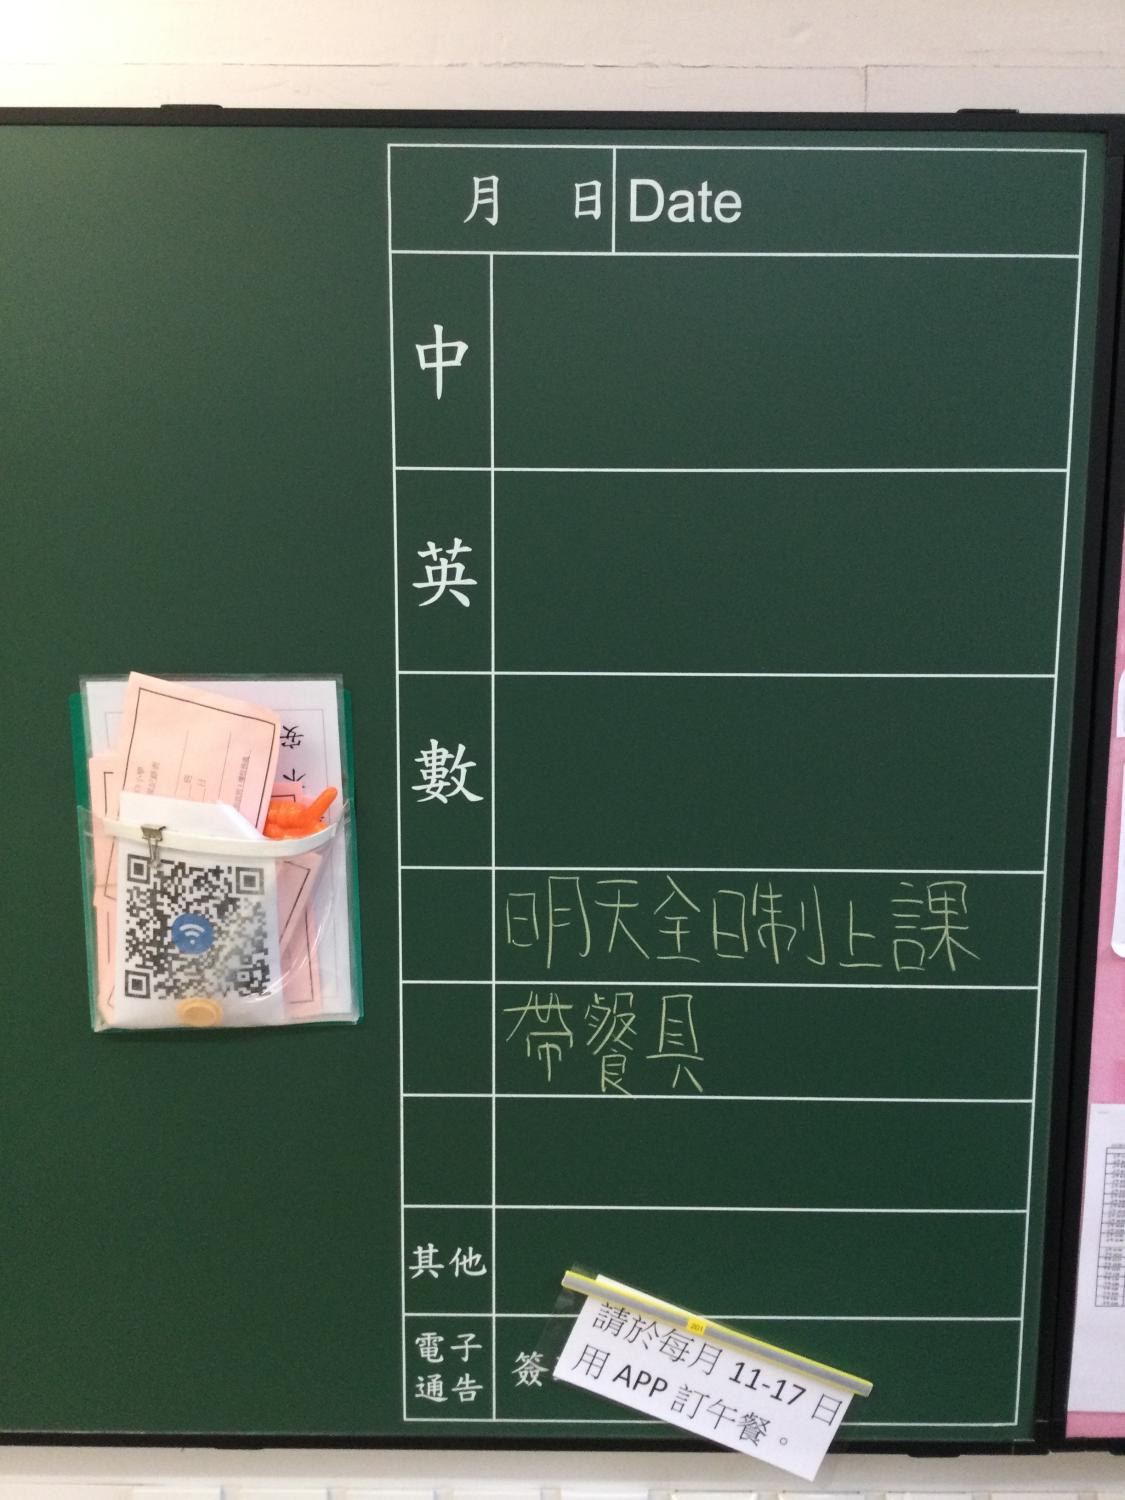 月 日 Date
中
英
數
明天全日制上課
帶餐具
其他
電子
通告
簽
201
請於每月 11-17 日
用 APP 訂午餐。
安
不